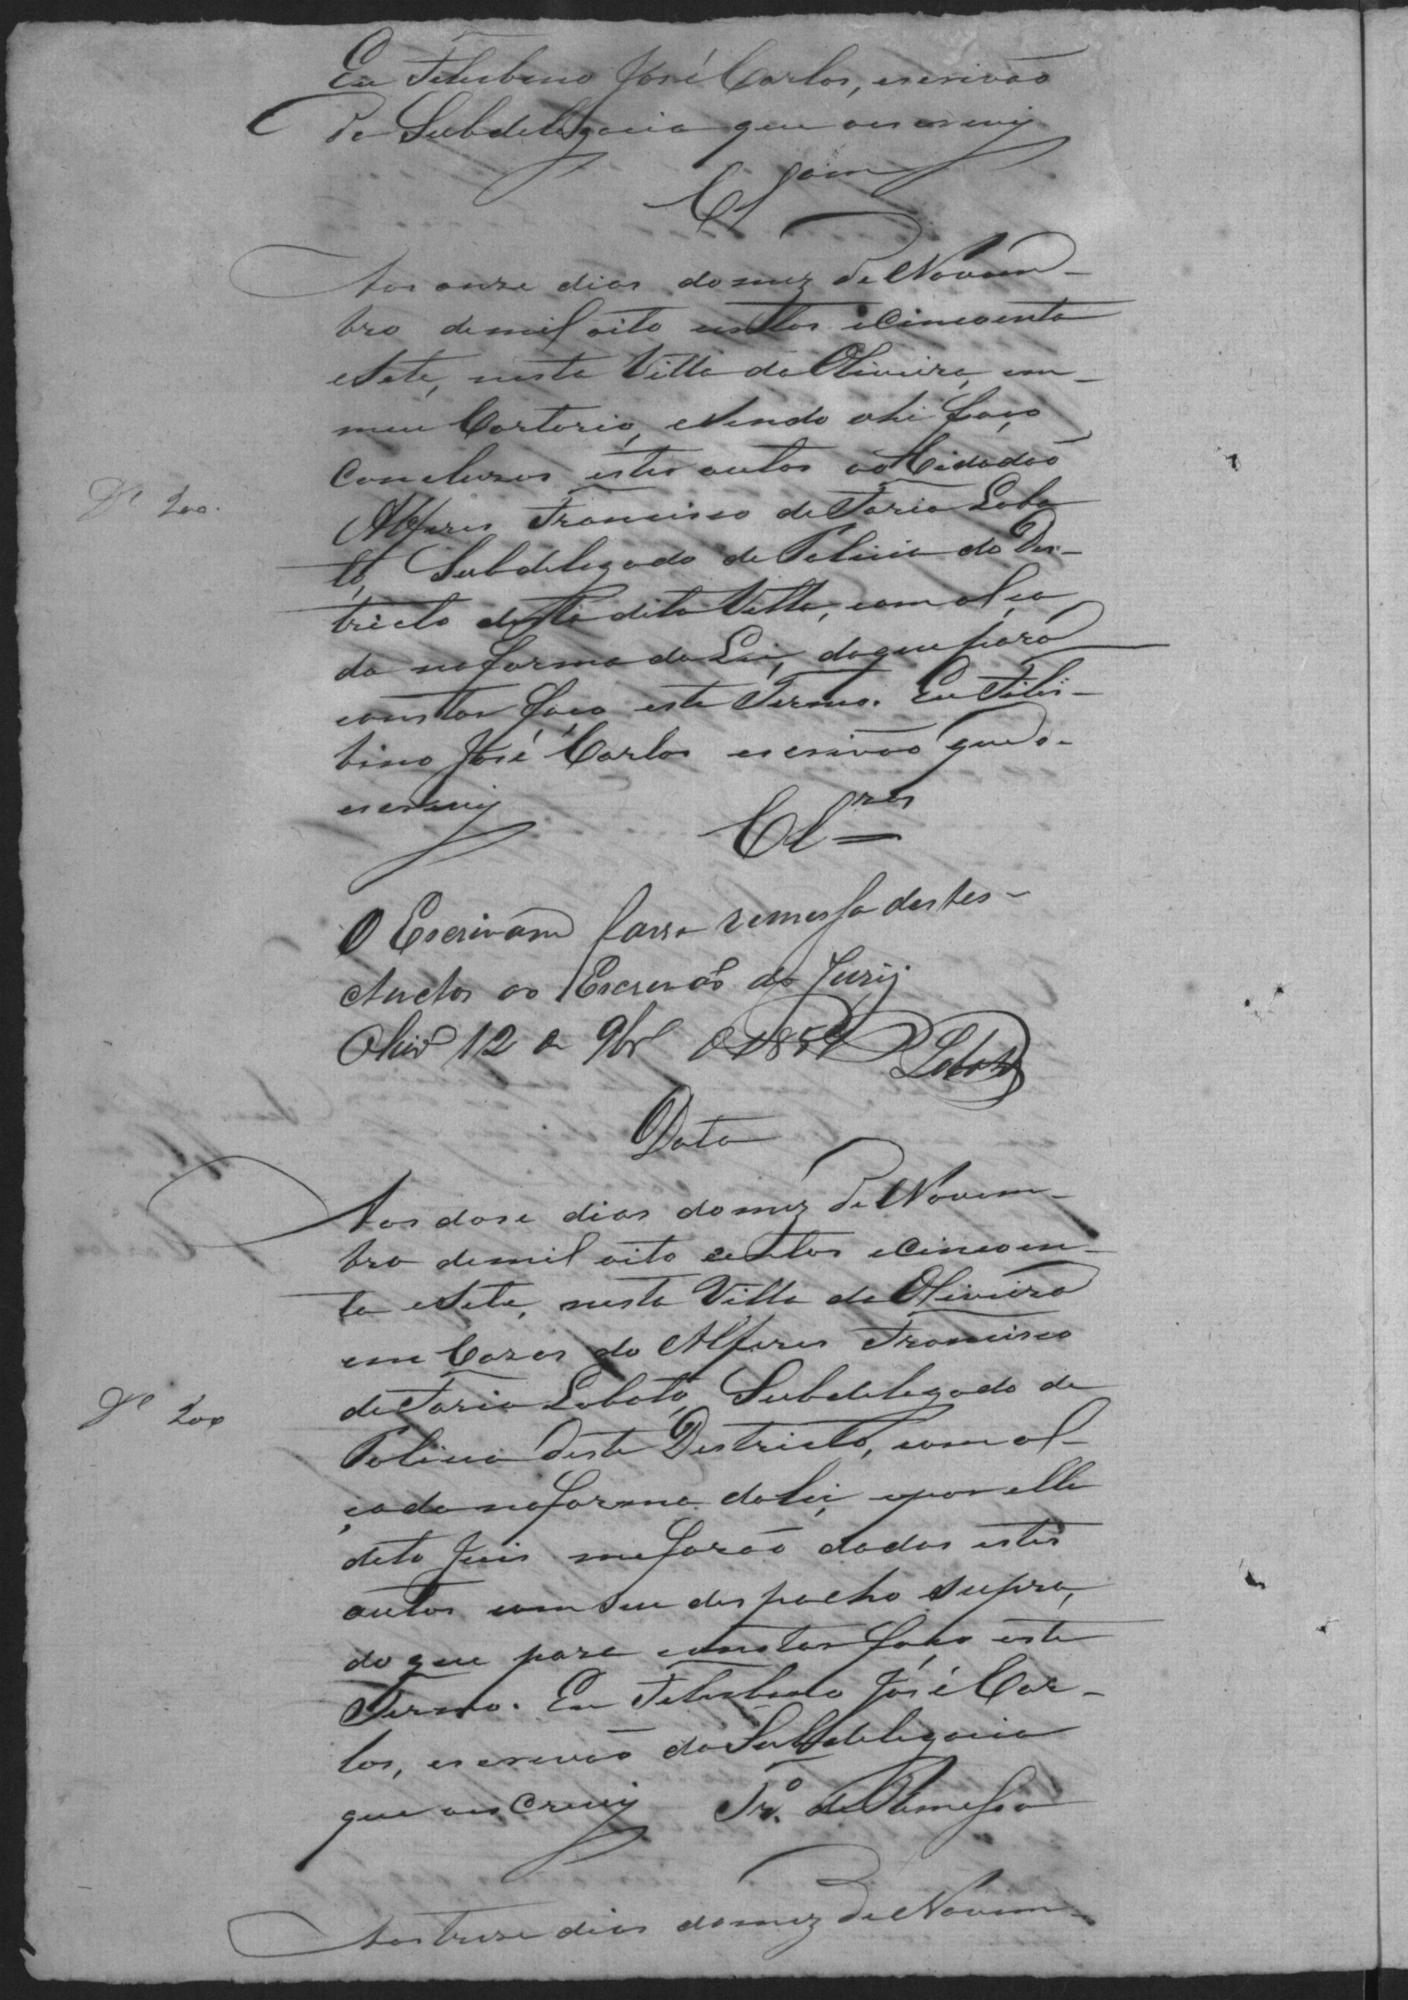 Eu Felisbino José Carlos, escrivão
da Subdelegacia que o escrevy
Clsam
Aos onze dias do mez de Novem-
bro de mil oito centos e cincoenta
e Sete, nesta Villa da Oliveira, em
meu Cartorio, e sendo ahi faço
conclusos estes autos ao Cidadão
Alferes Francisco de Faria Loba-
to, Subdelegado de Policia do Des-
tricto desta dita Villa, com alça
da na forma da Lei, do que para
constar faço este Termo. Eu Felis-
bino José Carlos escrivão que o
escrevy
Cl.res
Dº 200.
O Escrivam fassa remessa destes
Auctos ao Escrivão do Jury
Olivrª 12 de 9brº de 1857 Lobato
Data
Aos dose dias do mez de Novem-
bro de mil oito centos e cincoen-
ta e Sete, nesta Villa da Oliveira
em Cazas do Alferes Francisco
de Faria Lobato, Subdelegado de
Policia deste Destricto, com al-
çada na forma da Lei, e por elle
dito Juis me forão dados estes
autos com seu despacho supra,
do que para constar faço este
Termo. Eu Felisbino José Car-
los, escrivão da Subdelegacia
que o escrevy Trº. de Remessa
Dº 200
Aos treze dias do mez de Novem-